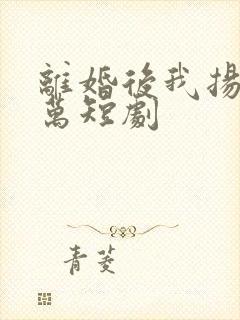 離婚後我揚
萬短劇
青菱